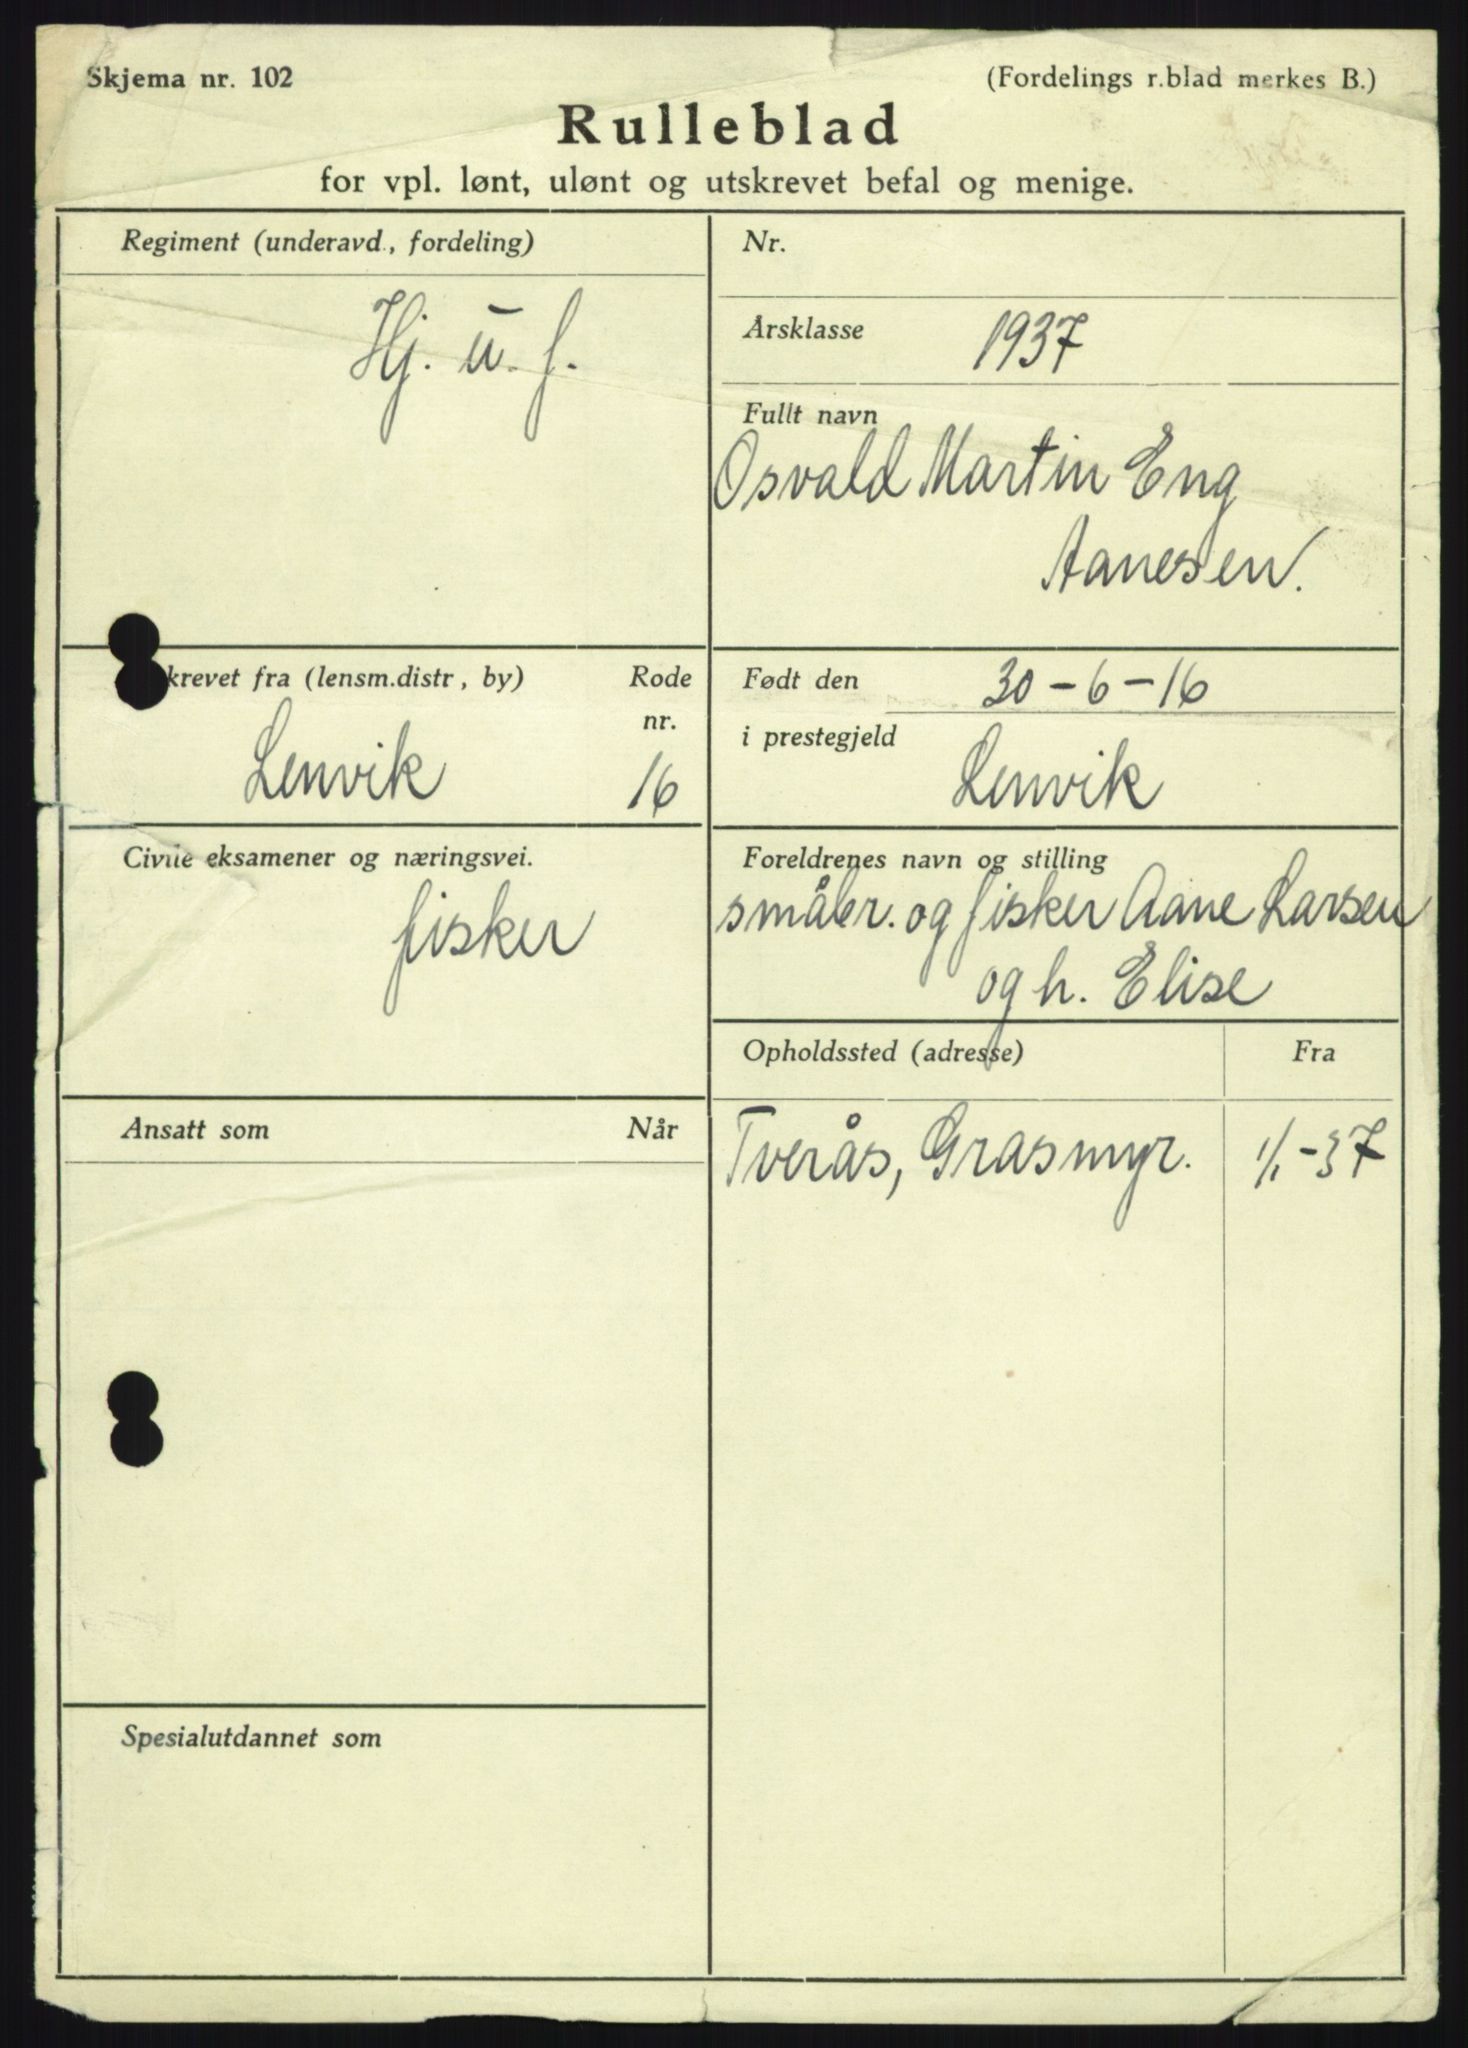 Skjema nr. 102
(Fordelings r.blad merkes B.)
Rulleblad
for vpl. lønt, ulønt og utskrevet befal og menige.
Regiment (underavd., fordeling)
Hj. u. f.
Nr.
Årsklasse 1937
Fullt navn
Osvald Martin Eng
Aanesen.
krevet fra (lensm.distr, by)
Rode
nr.
Lenvik
16
Født den 30-6-16
i prestegjeld
Lenvik
Civile eksamener og næringsvei.
fisker
Foreldrenes navn og stilling
småbr. og fisker Aane Larsen
og h. Elise
Ansatt som
Når
Opholdssted (adresse)
Fra
Tverås, Grasmyr.
1/1-37
Spesialutdannet som